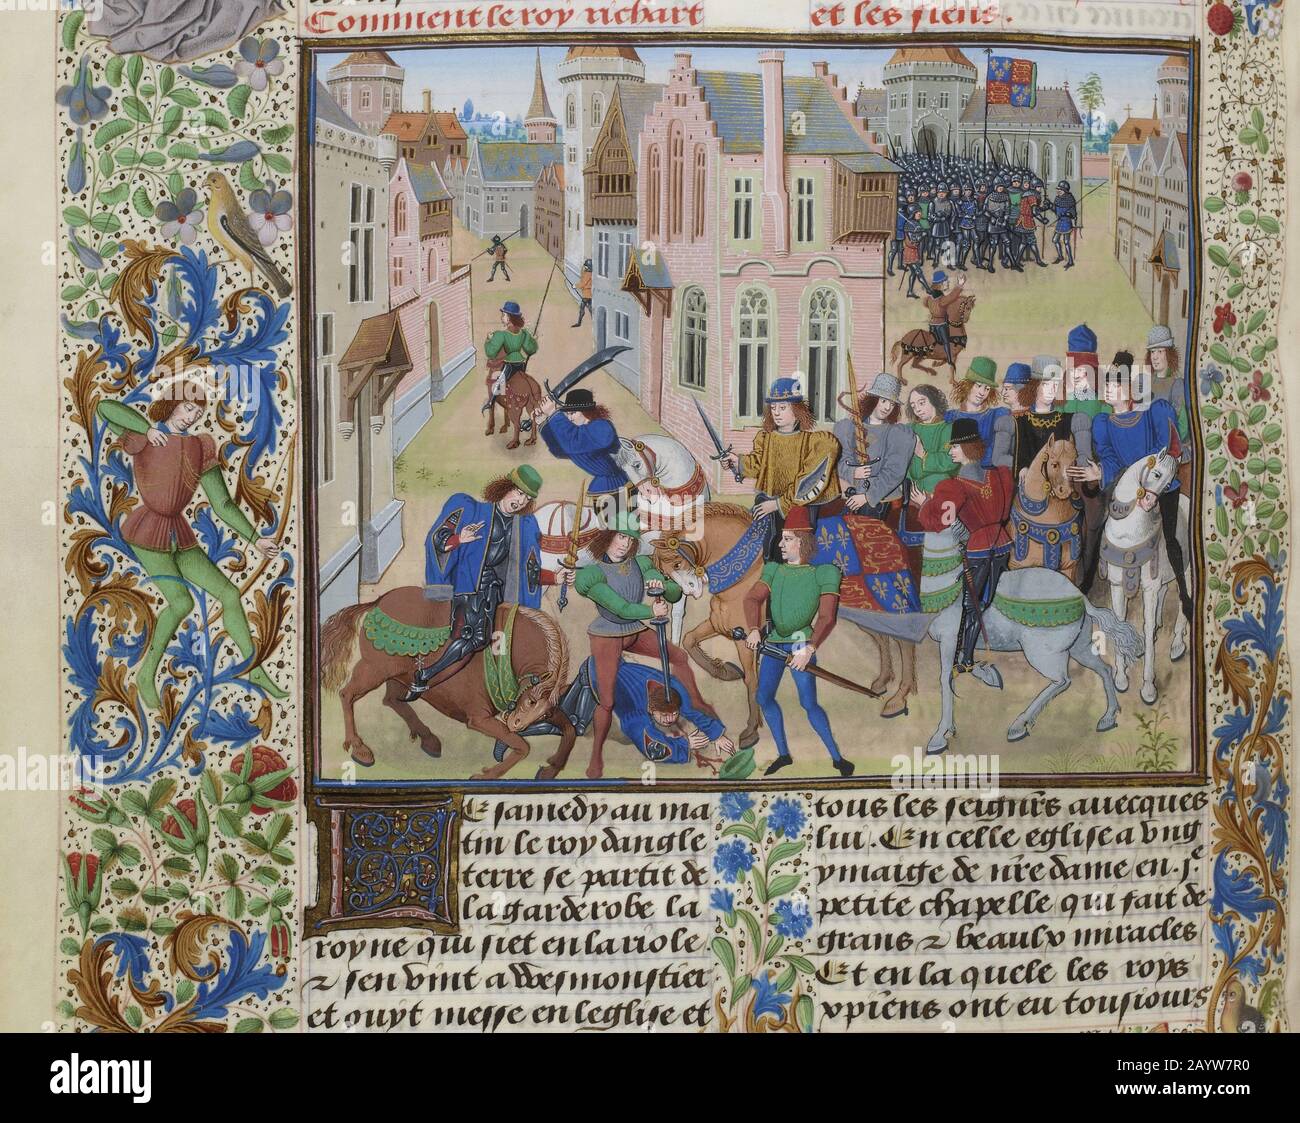 Comment le roy richart
et les siens.
Ce samedy au ma
tin le roy dangle
terre se partit de
la garderobe la
royne qui siet en la riole.
⁊ sen vint a Wesmonstier
et ouyt messe en leglise et
tous les seignrs auecques
lui. En celle eglise a vng
ymaige de nre dame en
petite chapelle qui fait de
grans ⁊ beaulx miracles
Et en la quele les roys
ont eu tousiours
alamy
Image ID: 2AYW7R0
www.alamy.com